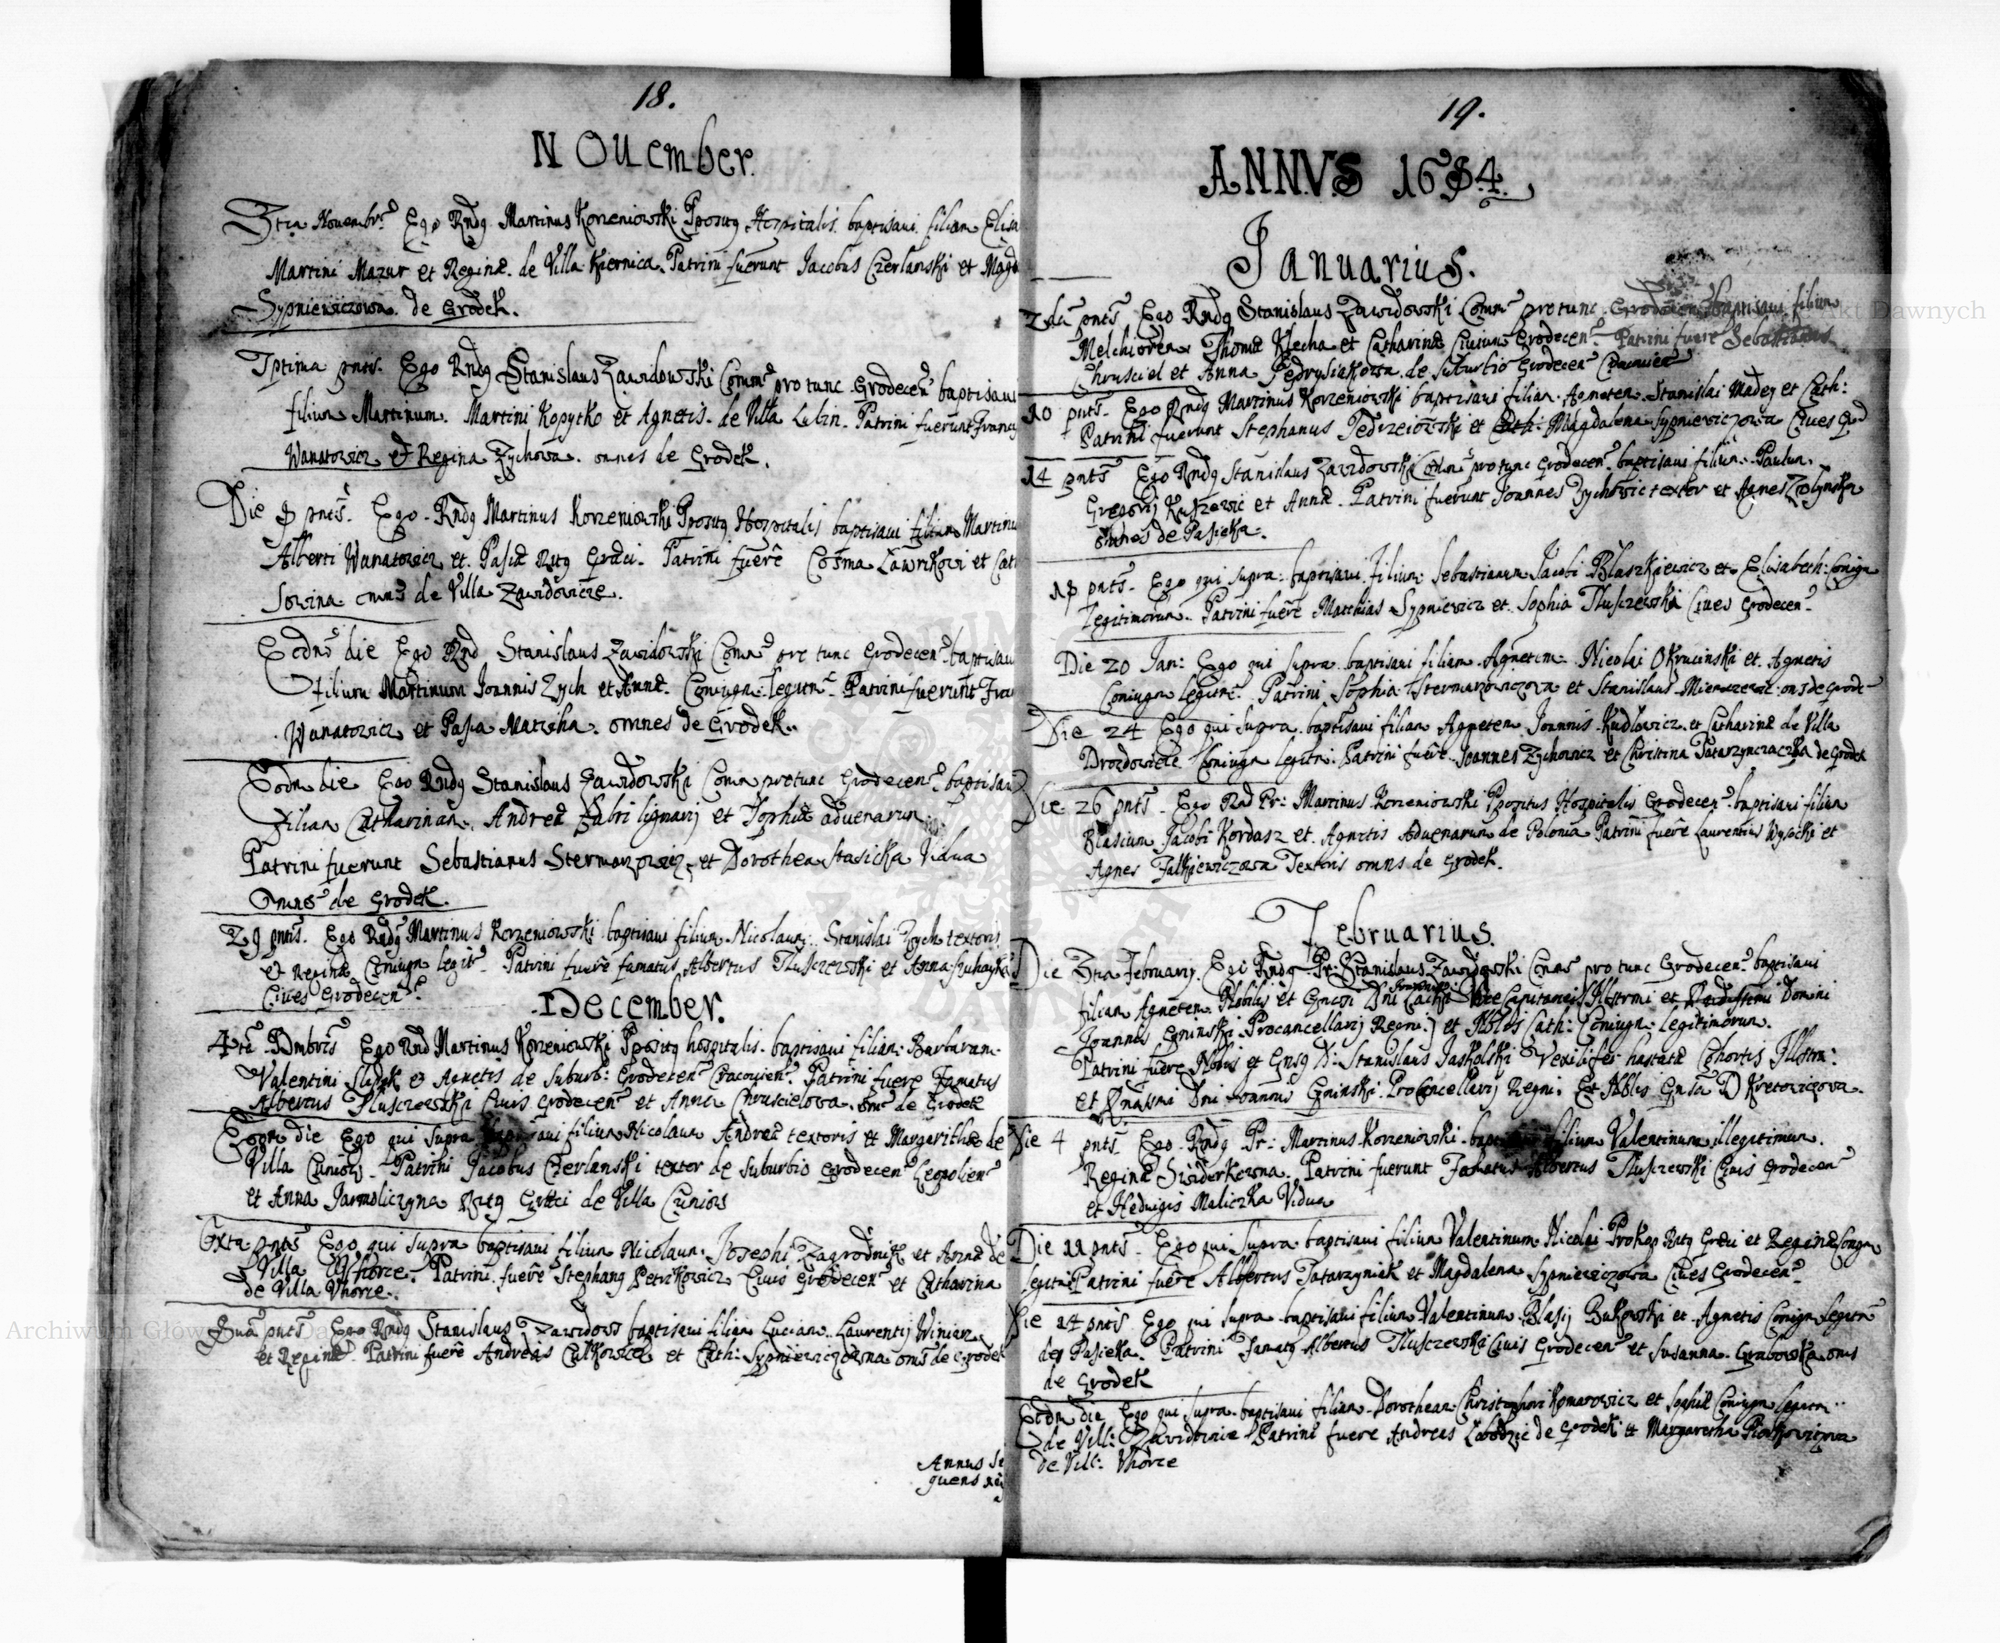 18.
NOUember.
3tia Nouembr. Ego Rndq Martinus Korzeniowski Ppositq Hospitalis baptisaui filiam Elisa
Martini Mazur et Reginæ de Villa Kiernica. Patrini fuerunt Jacobus Czerlanski et Magda
Sypniewiczowa de Grodek.
7ptima pnts. Ego Rndq Stanislaus Zawidowski Comm pro tunc Grodecen baptisaui
filium Martinum Martini Kopytko et Agnetis de Villa Lubin. Patrini fuerunt Francis
Wanatowicz et Regina Zychowa omnes de Grodek.
Die 8 pnts. Ego Rndq Martinus Korzeniowski Ppositq Hospitalis baptisaui filium Martinu
Alberti Wanatowicz et Pasiæ Ritq Græci. Patrini fuere Cosma Lawrikow et Cat
Sowina omnes de Villa Zawidowicze.
Eodm die Ego Rnd Stanislaus Zawidowski Comm pro tunc Grodecen baptisaui
filium Martinum Joannis Zych et Annæ Coniugu legitm. Patrini fuerunt Fran
Wanatowicz et Pasia Matczka omnes de Grodek.
Eodm die Ego Rndq Stanislaus Zawidowski Comm pro tunc Grodecen baptisaui
filiam Catharinam Andreæ Fabri lignarij et Sophiæ aduenarum
Patrini fuerunt Sebastianus Stermanowicz et Dorothea Stasicka Vidua
Omnes de Grodek.
29 pnts. Ego Rndq Martinus Korzeniowski baptisaui filium Nicolaum Stanislai Zych textoris
et Reginæ Coniugu legit. Patrini fuere famatus Albertus Tlusczewski et Anna
Ciues Grodecen.
December.
4ta Dmbris Ego Rnd Martinus Korzeniowski Ppositq hospitalis baptisaui filiam Barbaram
Valentini et Agnetis de Suburb: Grodecen Cracouien. Patrini fuere Famatus
Albertus Tlusczewski Ciuis Grodecen et Anna Chruscielowa. oms de Grodek
Eodm die Ego qui supra baptisaui filium Nicolaum Andreæ textoris et Margarithæ de
Villa Cuniow. Patrini Jacobus Czerlanski textor de Suburbio Grodecen Leopolien
et Anna Jarmoliczyna Ritq Græci de Villa Cuniow
6xta pnts Ego qui supra baptisaui filium Nicolaum Josephi Zagrodnik et Annæ de
Villa Vhorce. Patrini fuere Stephanq Petrikowicz Ciuis Grodecen et Catharina
de Villa Vhorce.
9na pnts Ego Rndq Stanislaus Zawidows baptisaui filiam Luciam Laurentij Winiarz
et Reginæ Patrini fuere Andreas Calkowicz et Cath: Sypniewiczowna oms de Grodek
Annus Se
quens
19.
ANNVS 1654.
Januarius.
2da pnts Ego Rndq Stanislaus Zawidowski Comm pro tunc Grodecen baptisaui filium
Melchiorem Thomæ Klecha et Catharinæ Ciuium Grodecen. Patrini fuere Sebastianus
Chrusciel et Anna Pedrysiakowa de Suburbio Grodecen Cracouien
10 pnts. Ego Rndq Martinus Korzeniowski baptisaui filiam Agnetem Stanislai Madey et Cath:
Patrini fuerunt Stephanus Jedrzeiowski et Magdalena Sypniewiczowa Ciues Grod
14 pnts Ego Rndq Stanislaus Zawidowski Comm pro tunc Grodecen baptisaui filium Paulum
Gregorij et Annæ. Patrini fuerunt Joannes Zychowic textor et Agnes
omnes de Pasieka.
18 pnts. Ego qui supra baptisaui filium Sebastianum Jacobi Blaszkiewicz et Elisabeth: Coniugu
legitimorum. Patrini fuere Matthias Sypniewicz et Sophia Tlusczewska Ciues Grodecen.
Die 20 Jan: Ego qui supra baptisaui filiam Agnetem Nicolai Okrucinski et Agnetis
Coniugu legitm. Patrini Sophia Stermanowiczowa et Stanislaus oms de Grode
Die 24 Ego qui supra baptisaui filiam Agnetem Joannis Kudlowicz et Catharinæ de Villa
Drozdowicze Coniugu legitm: Patrini fuere Joannes Zychowicz et Christina Tatarzynczaczka de Grodek
Die 26 pnts. Ego Rnd Pr: Martinus Korzeniowski Ppositus Hospitalis Grodecen baptisaui filium
Blasium Jacobi Kordasz et Agnetis Aduenarum de Polonia Patrini fuere Laurentius Wysocki et
Agnes Falkiewiczowa Textoris omns de Grodek.
Februarius.
Die 3tia Februarij. Ego Rndq Pr: Stanislaus Zawidowski Comm pro tunc Grodecen baptisaui
filiam Agnetem Nobilis et Gnosi Dni Vice Capitanei Illstrmi et Rndissimi Domini
Joannis Gninski Procancellarij Regni et Nblis Cath: Coniugu legitimorum.
Patrini fuere Nblis et Gnsq D: Stanislaus Jaskolski Vexillifer hastatæ Cohortis Illstrm:
et Dni Joannis Gninski Procancellarij Regni Et Nblis Gnsa D Kretowiczowa.
Die 4 pnts. Ego Rndq Pr: Martinus Korzeniowski baptisaui filium Valentinum illegitimum
Reginæ Swiderkowna. Patrini fuerunt Famatus Albertus Tlusczewski Ciuis Grodecen
et Hedwigis Maliczka Vidua
Die 11 pnts. Ego qui supra baptisaui filium Valentinum Nicolai Prokop Ritq Græci et Reginæ Congu
legitm Patrini fuere Albertus Tatarzyniak et Magdalena Sypniewiczowa Ciues Grodecen.
Die 14 pnts Ego qui supra baptisaui filium Valentinum Blasij Bukowski et Agnetis Coniugu legitm
de Pasieka. Patrini Famatq Albertus Tlusczewski Ciuis Grodecen et Susanna Grabowska oms
de Grodek
Eodm die Ego qui supra baptisaui filiam Dorotheam Christophori Komarowicz et Sophiæ Coniugu legitm
de Vill: Zawidowice Patrini fuere Andreas Labedzic de Grodek et Margaretha
de Vill: Vhorce
Archiwum Główne Akt Dawnych
ARCHIWUM DAWNYCH